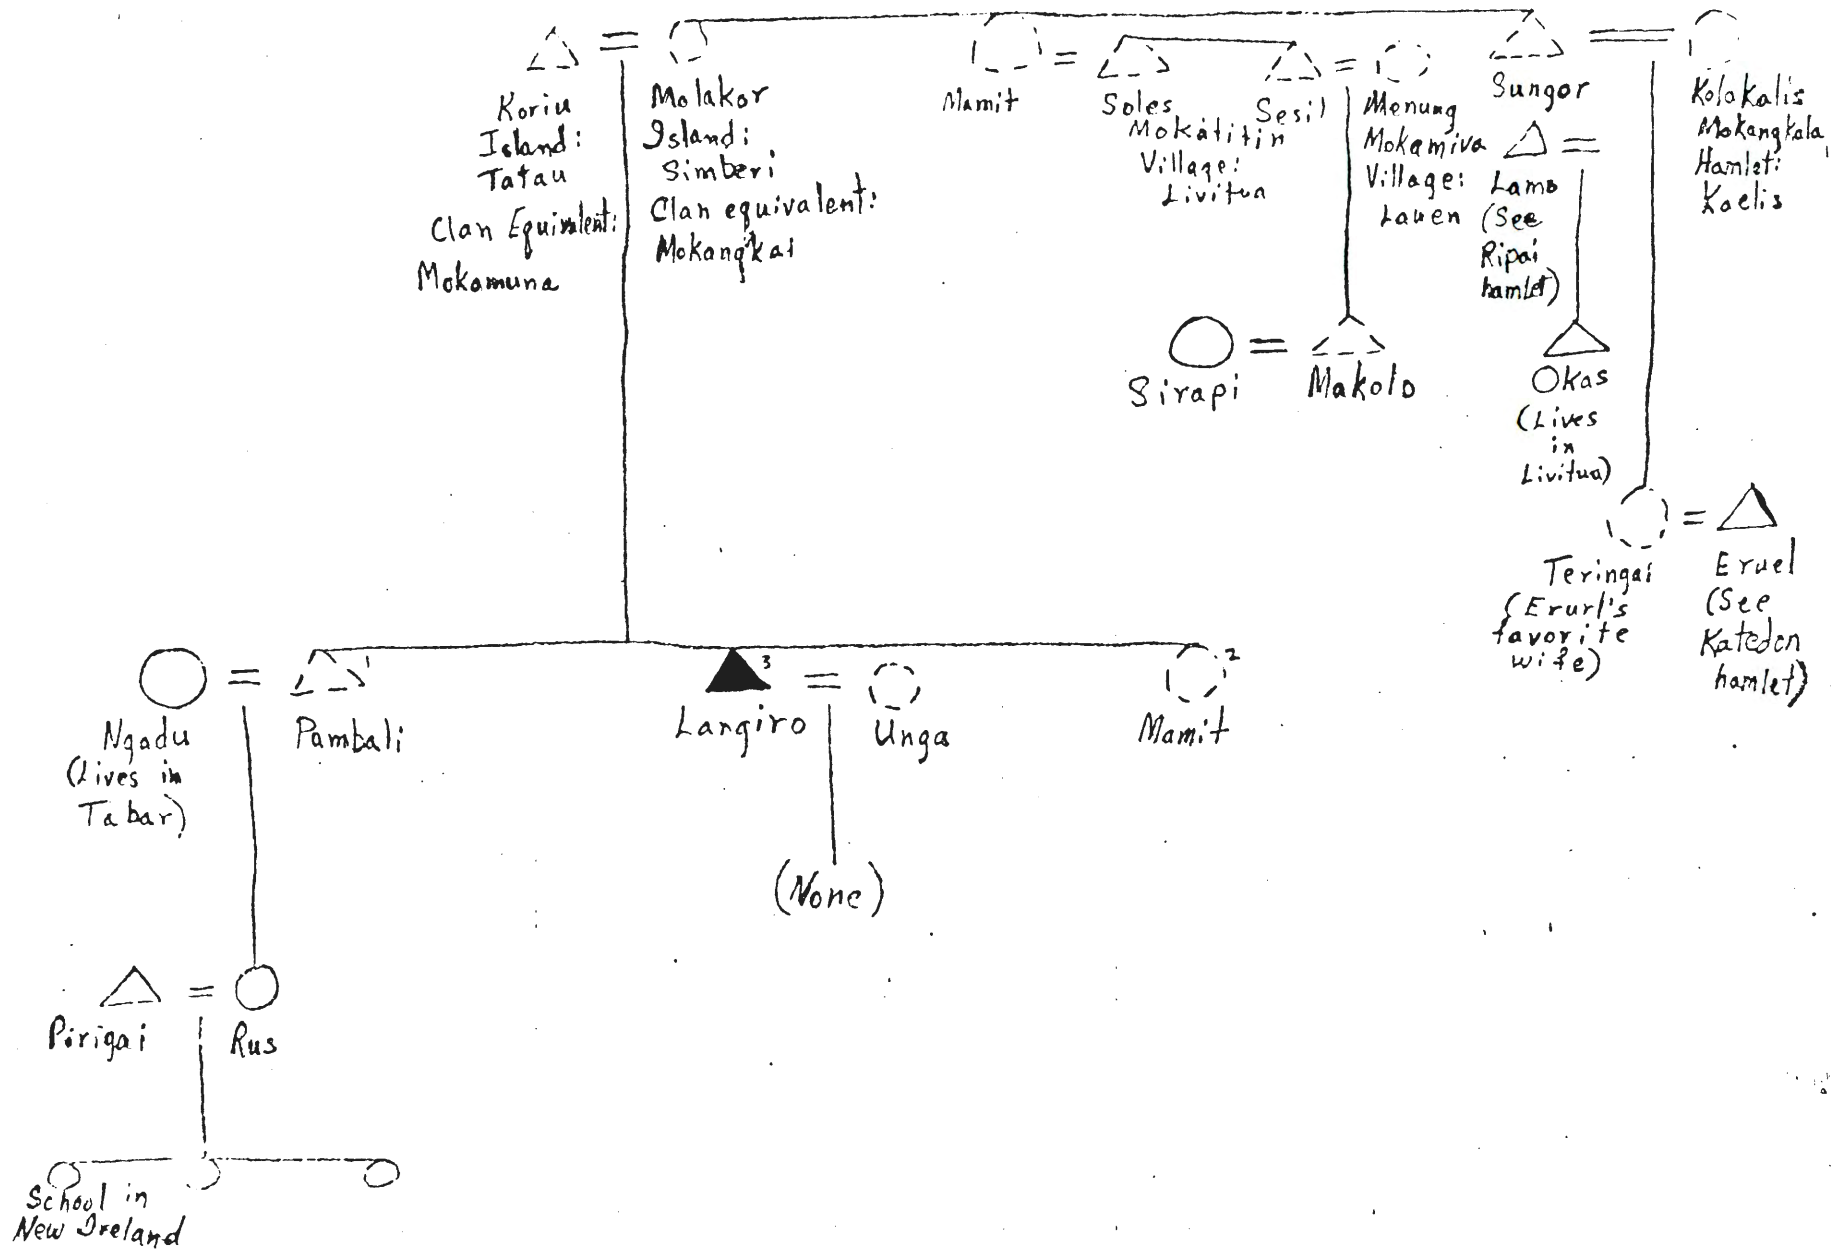 Koriu
Island:
Tatau
Clan Equivalent:
Mokamuna
Molakor
Island:
Simberi
Clan equivalent:
Mokangkai
Mamit
Soles
Mokatitin
Village:
Livitua
Sesil
Menung
Mokamiva
Village:
Lauen
Sungor
Lamo
(See
Ripai
hamlet)
Kolokalis
Mokangkala,
Hamlet:
Koelis
Sirapi
Makolo
Okas
(Lives
in
Livitua)
Teringai
(Erurl's
favorite
wife)
Eruel
(See
Katedon
hamlet)
Ngadu
(Lives in
Tabar)
1
Pambali
3
Langiro
Unga
2
Mamit
(None)
Pirigai
Rus
School in
New Ireland